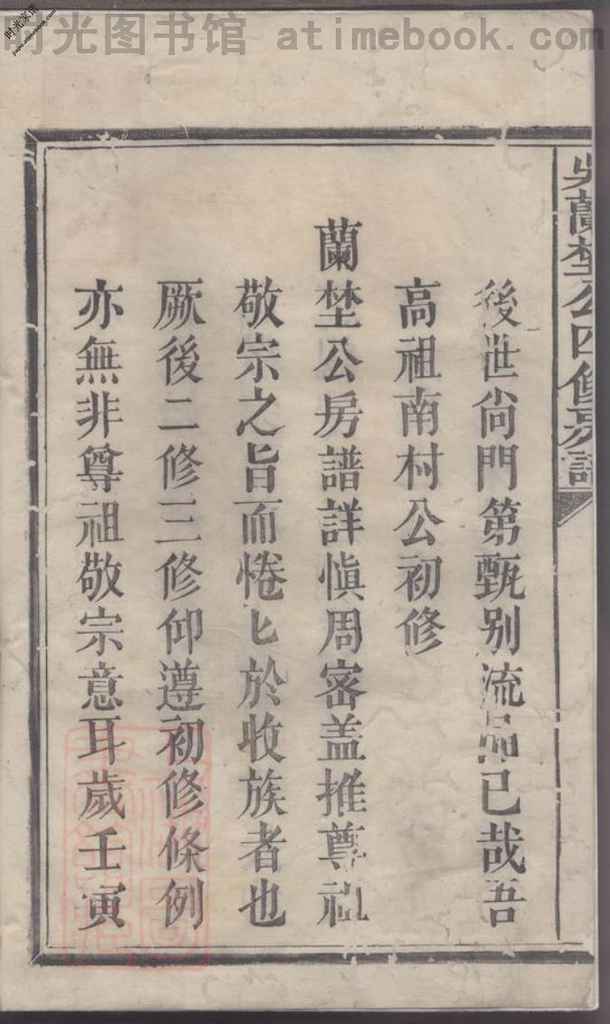 时光图书馆 atimebook.com
吳蘭埜公四修房譜
後世尙門第甄别流品已哉吾
高祖南村公初修
蘭埜公房譜詳愼周密盖推尊祖
敬宗之旨而惓匕於收族者也
厥後二修三修仰遵初修條例
亦無非尊祖敬宗意耳歲壬寅